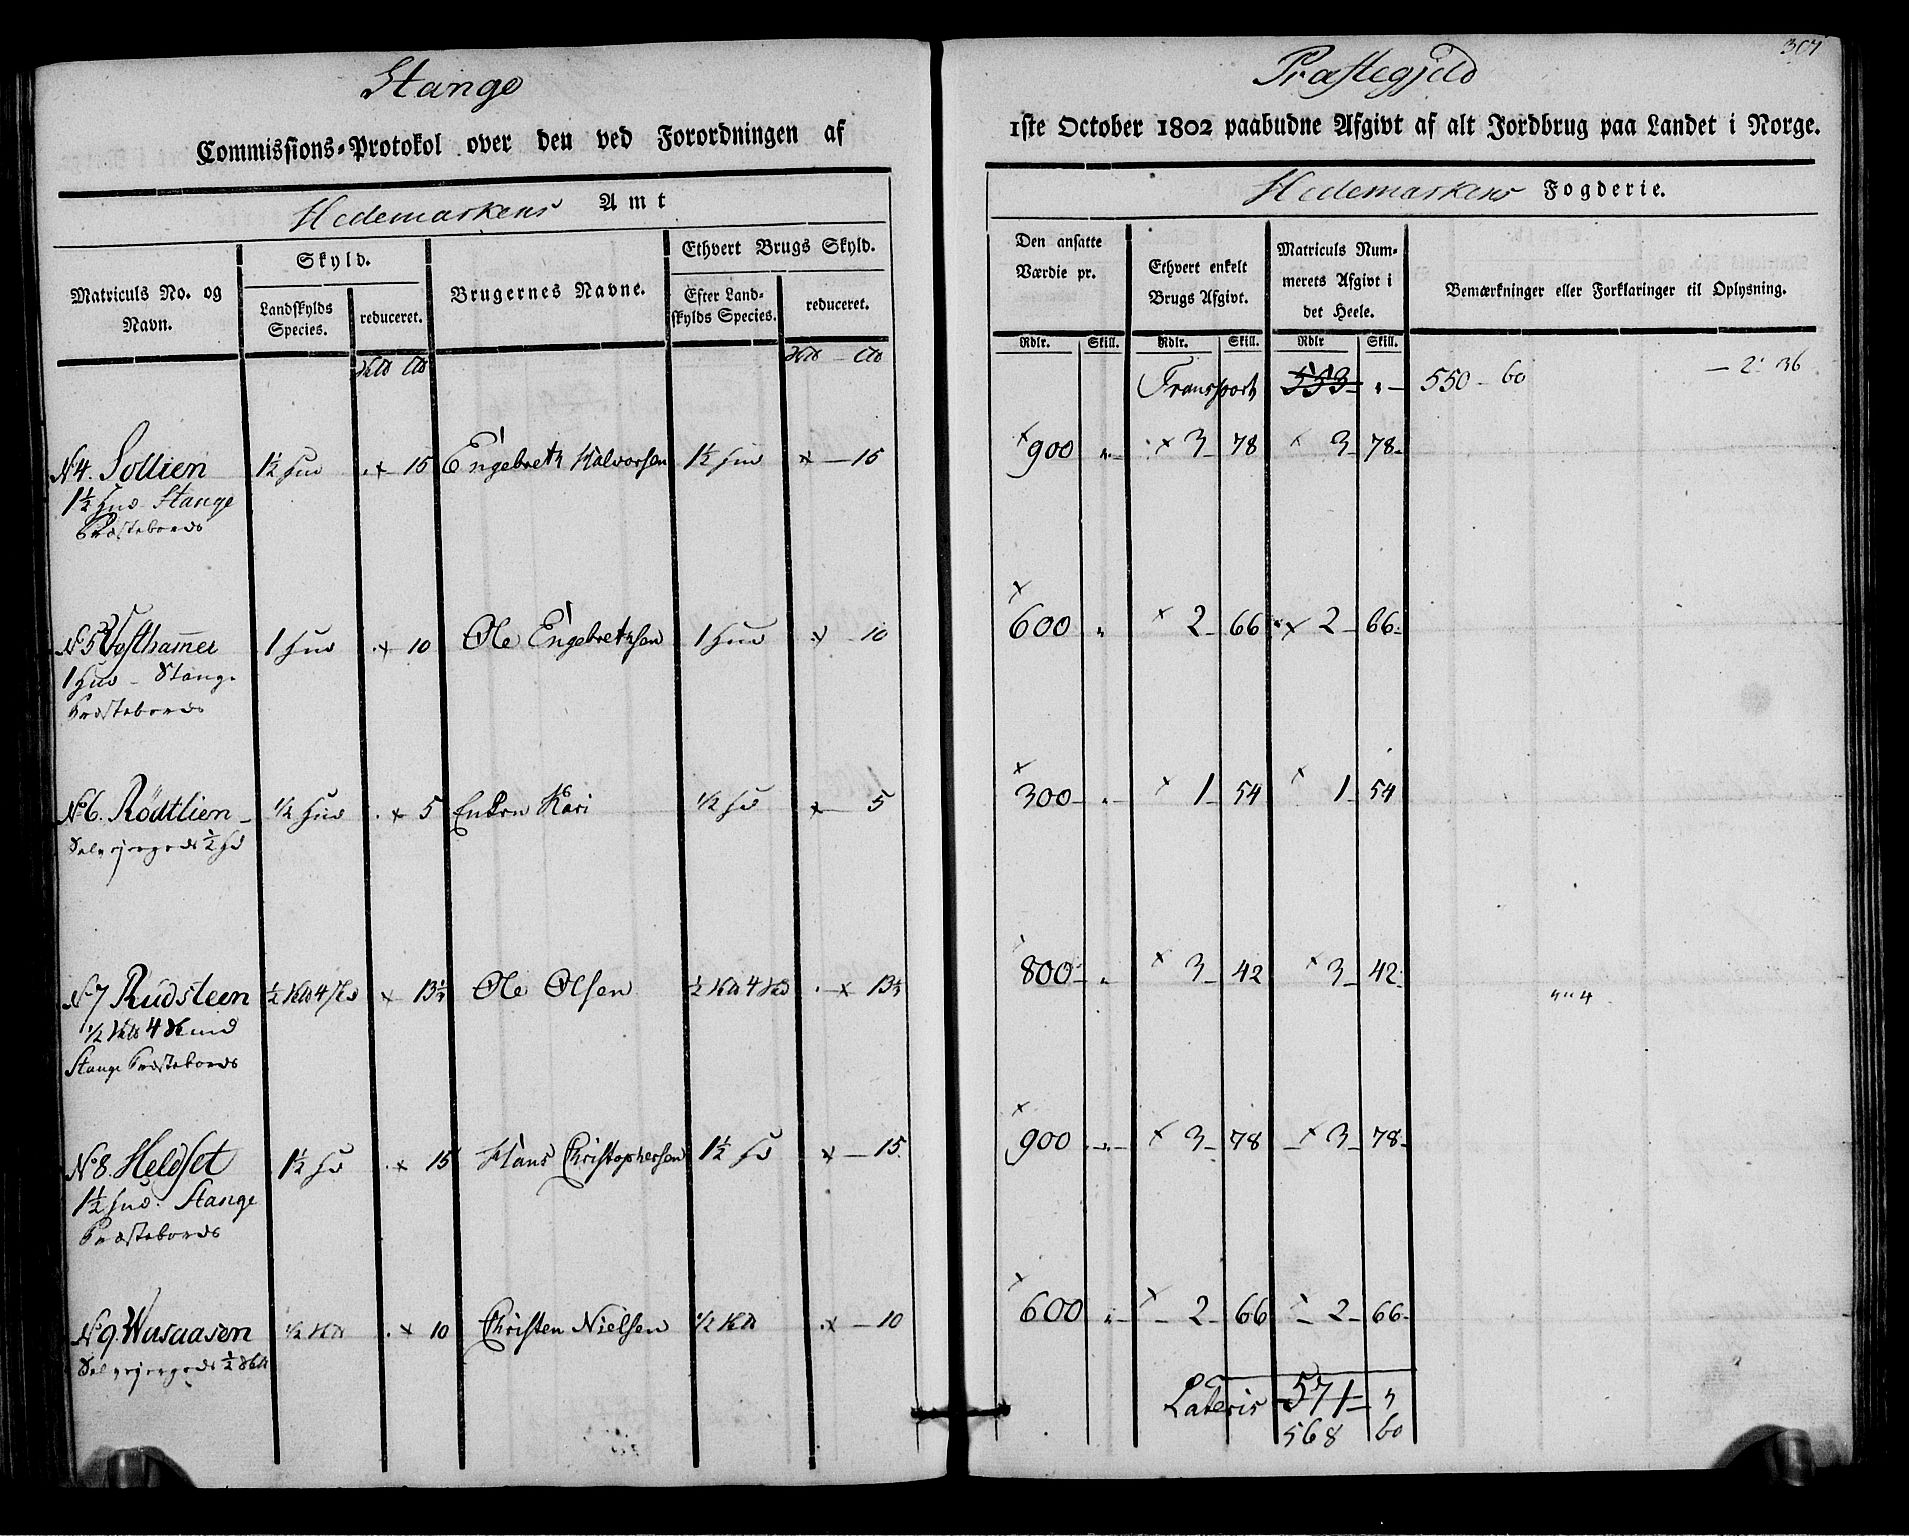 Stange
Præstegjeld
307
Commissions-Protokol over den ved Forordningen af
1ste October 1802 paabudne Afgivt af alt Jordbrug paa Landet i Norge.
Hedemarkens Amt
Hedemarkens Fogderie.
Matriculs No. og Navn.
Skyld.
Landskylds Species.
reduceret.
Brugernes Navne.
Ethvert Brugs Skyld.
Efter Landskylds Species.
reduceret.
Den ansatte Værdie pr.
Ethvert enkelt Brugs Afgivt.
Matriculs Nummerets Afgivt i det Heele.
Bemærkninger eller Forklaringer til Oplysning.
Rdlr. Skill. Rdlr. Skill. Rdlr Skill.
Transport 553 " 550 - 60 - 2: 36
N4. Sollien 1½ Hud x 15 Engebreth Halvorsen 1½ Hud x - 15 x 900 " x 3 78 x 3 78
1½ Hud Stange
Præstebords
N5 Vosthamer 1 Hud x 10 Ole Engebrethsen 1 Hud x - 10 x 600 " x 2 66 x 2 66
1 Hud - Stange
Præstebords
N6. Rödtlien ½ Hud x 5 Enken Kari ½ Hd x 5 x 300 " x 1 54 x 1 54
Selvejergods ½ Hd
N7 Rudsteen ½ 4 x 13½ Ole Olsen ½ 4 x 13½ 800 " x 3 42 x 3 42 " " 4
½ 4 Skind
Stange Præstebords
N8. Heldset 1½ Hd x 15 Hans Christophersen 1½ Hd x - 15 x 900 " x 3 78 x 3 78
1½ Hud. Stange
Præstebords
N9. Wusaasen ½ x 10 Christen Nielsen ½ x - 10 x 600 " x 2 66 2 66
Selvejergods ½
Lateris 571 "
568 60